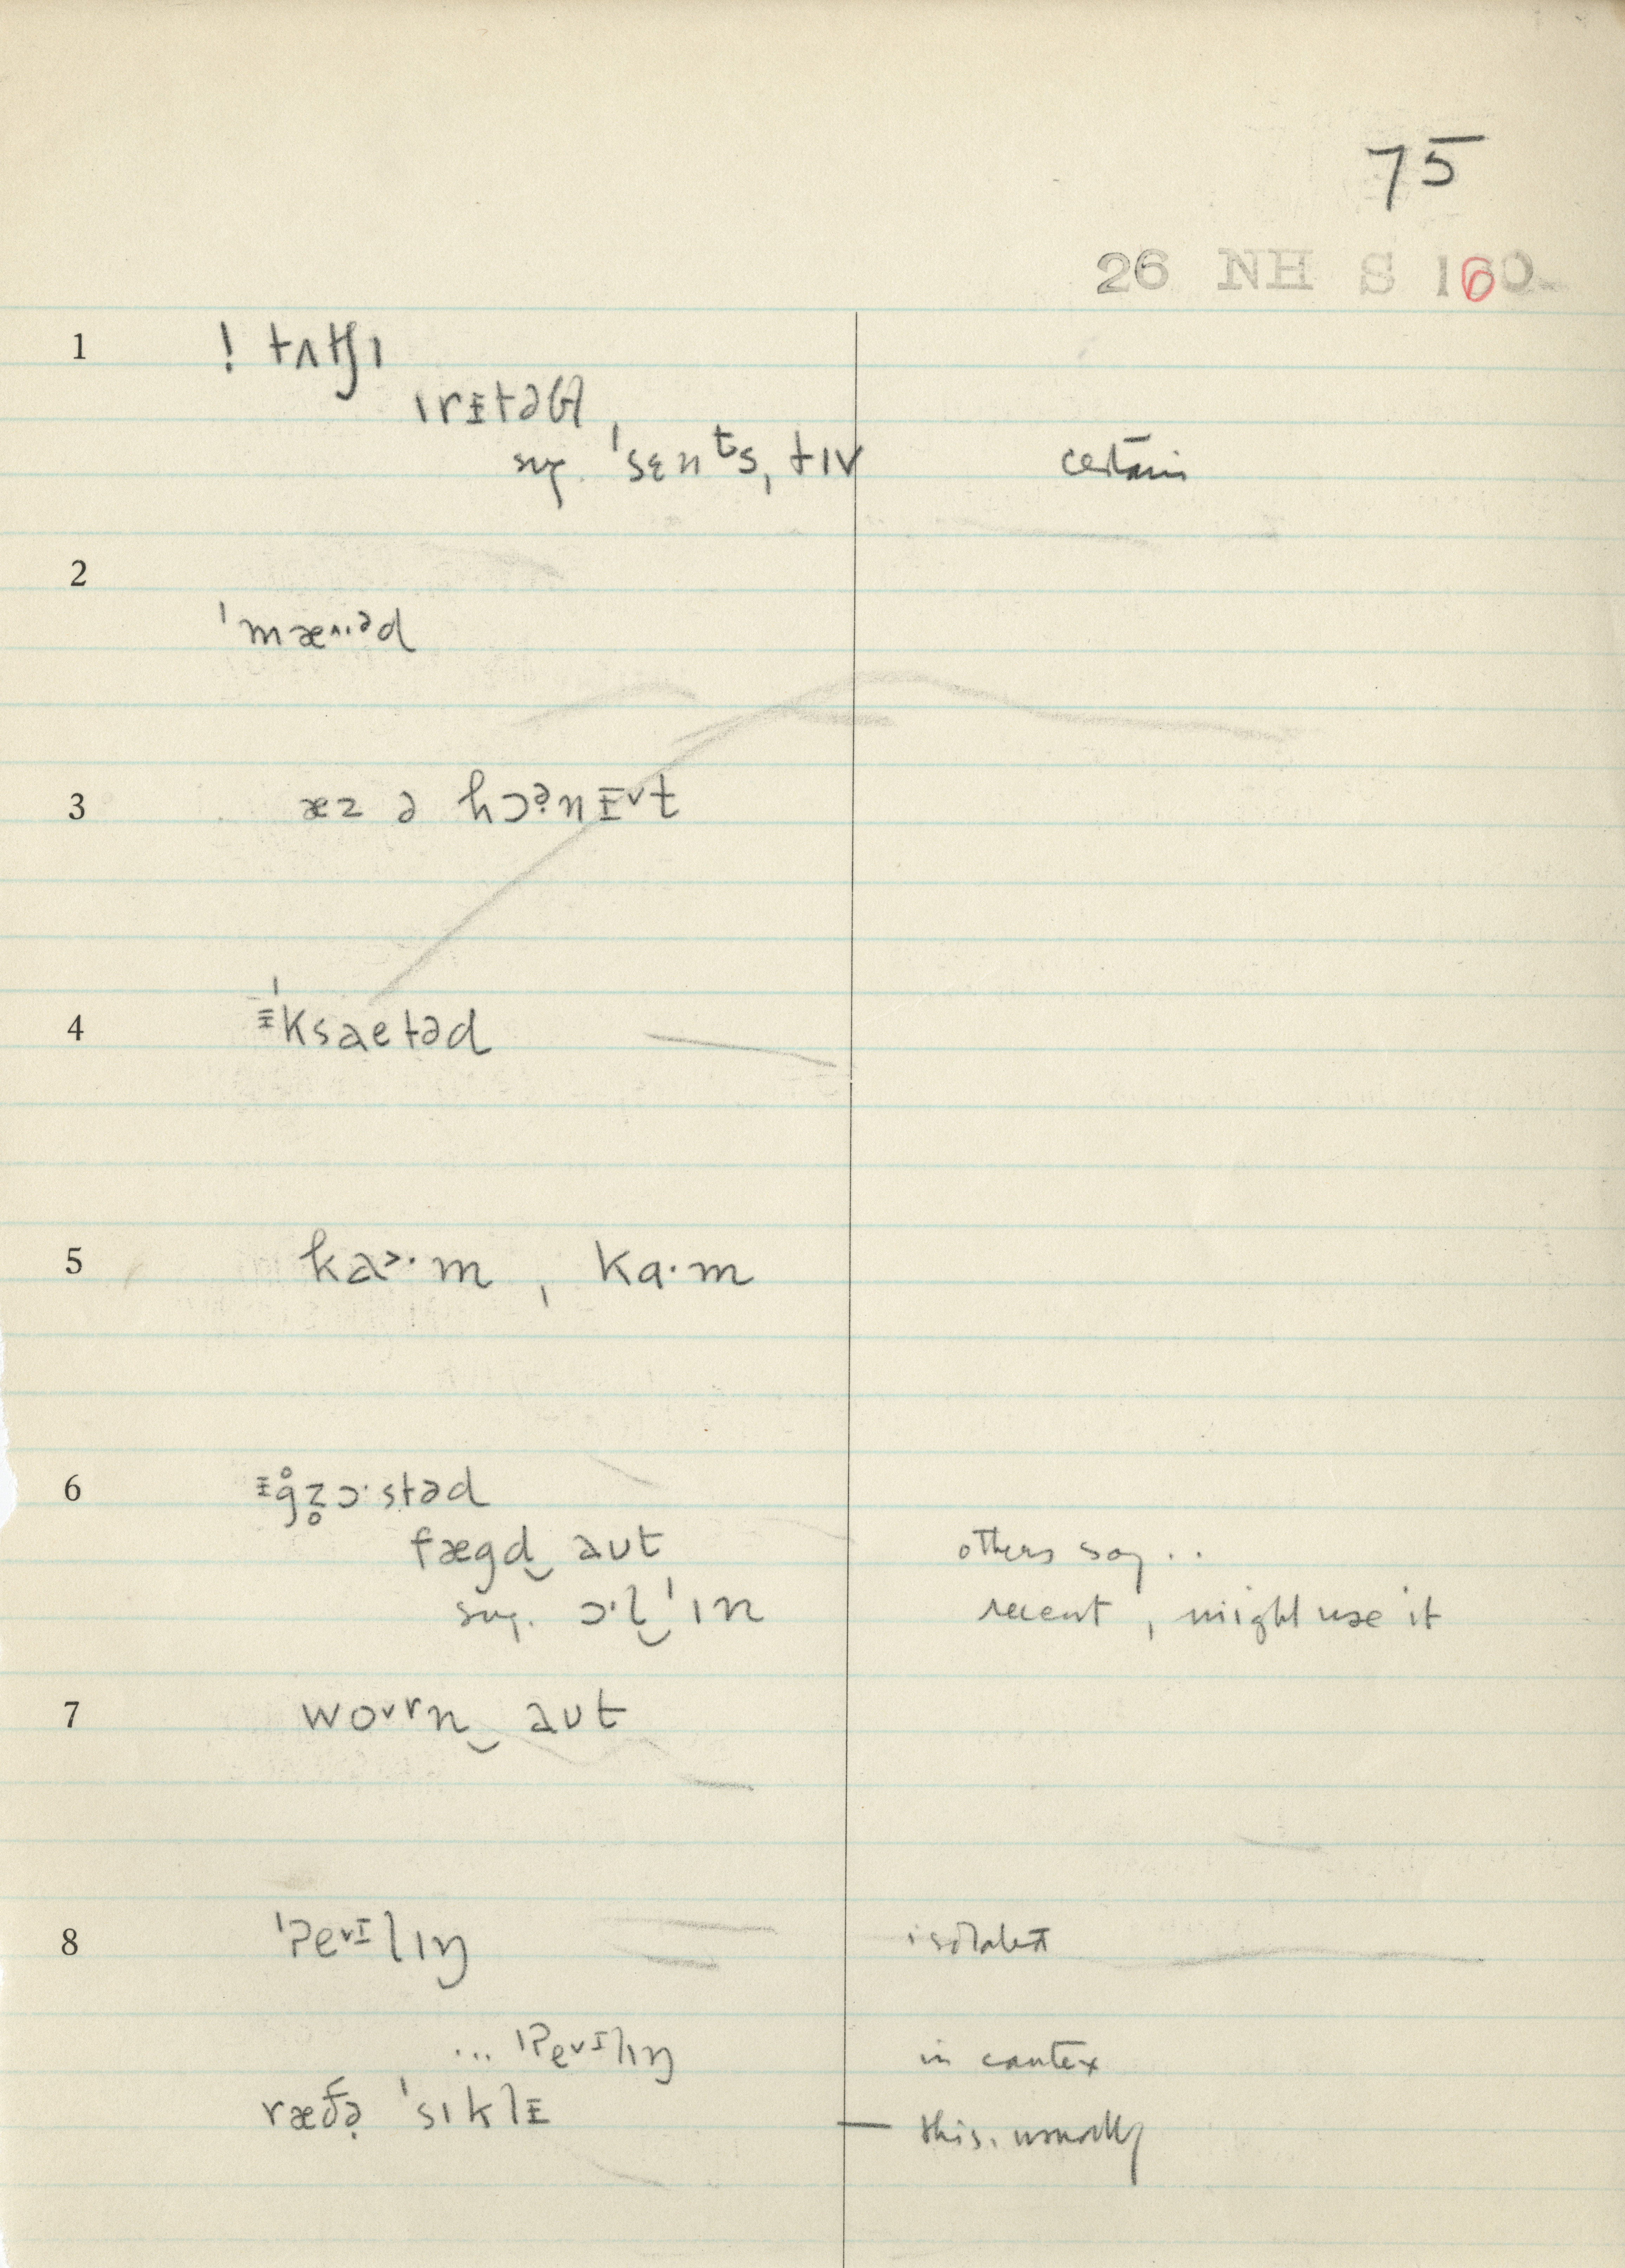 75
26 NH S 160
1 ! tʌtʃɪ
ˈrɪ̵təbl̩
sug. ˈsɛnᵗsˌtɪv certain
2
ˈmæ˄·ᵊd
3 æz ə hɔə̣nɪ̵˅t
4 ɪ̵ˈksaetəd
5 ka˃·m , kɑ·m
6 ɪ̵g̊z̥ɔ·stəd
fægd‿aut others say ..
sug. ɔ·l‿ˈɪn recent , might use it
7 wo˅rn‿aut
8 ˈPe˅ɪlɪŋ isolated
... ˈPe˅ɪlɪŋ in contex
ræðə̣ ˈsɪklɪ̵ — this, usually